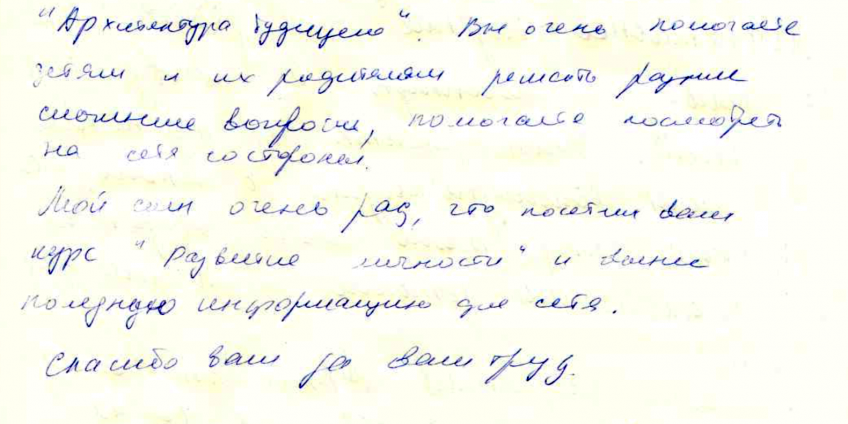 "Архитектура будущего". Вы очень помогаете
детям и их родителям решать разные
сложные вопросы, помогаете посмотреть
на себя со стороны.
Мой сын очень рад, что посетил ваш
курс "Развитие личности" и вынес
полезную информацию для себя.
Спасибо вам за ваш труд.